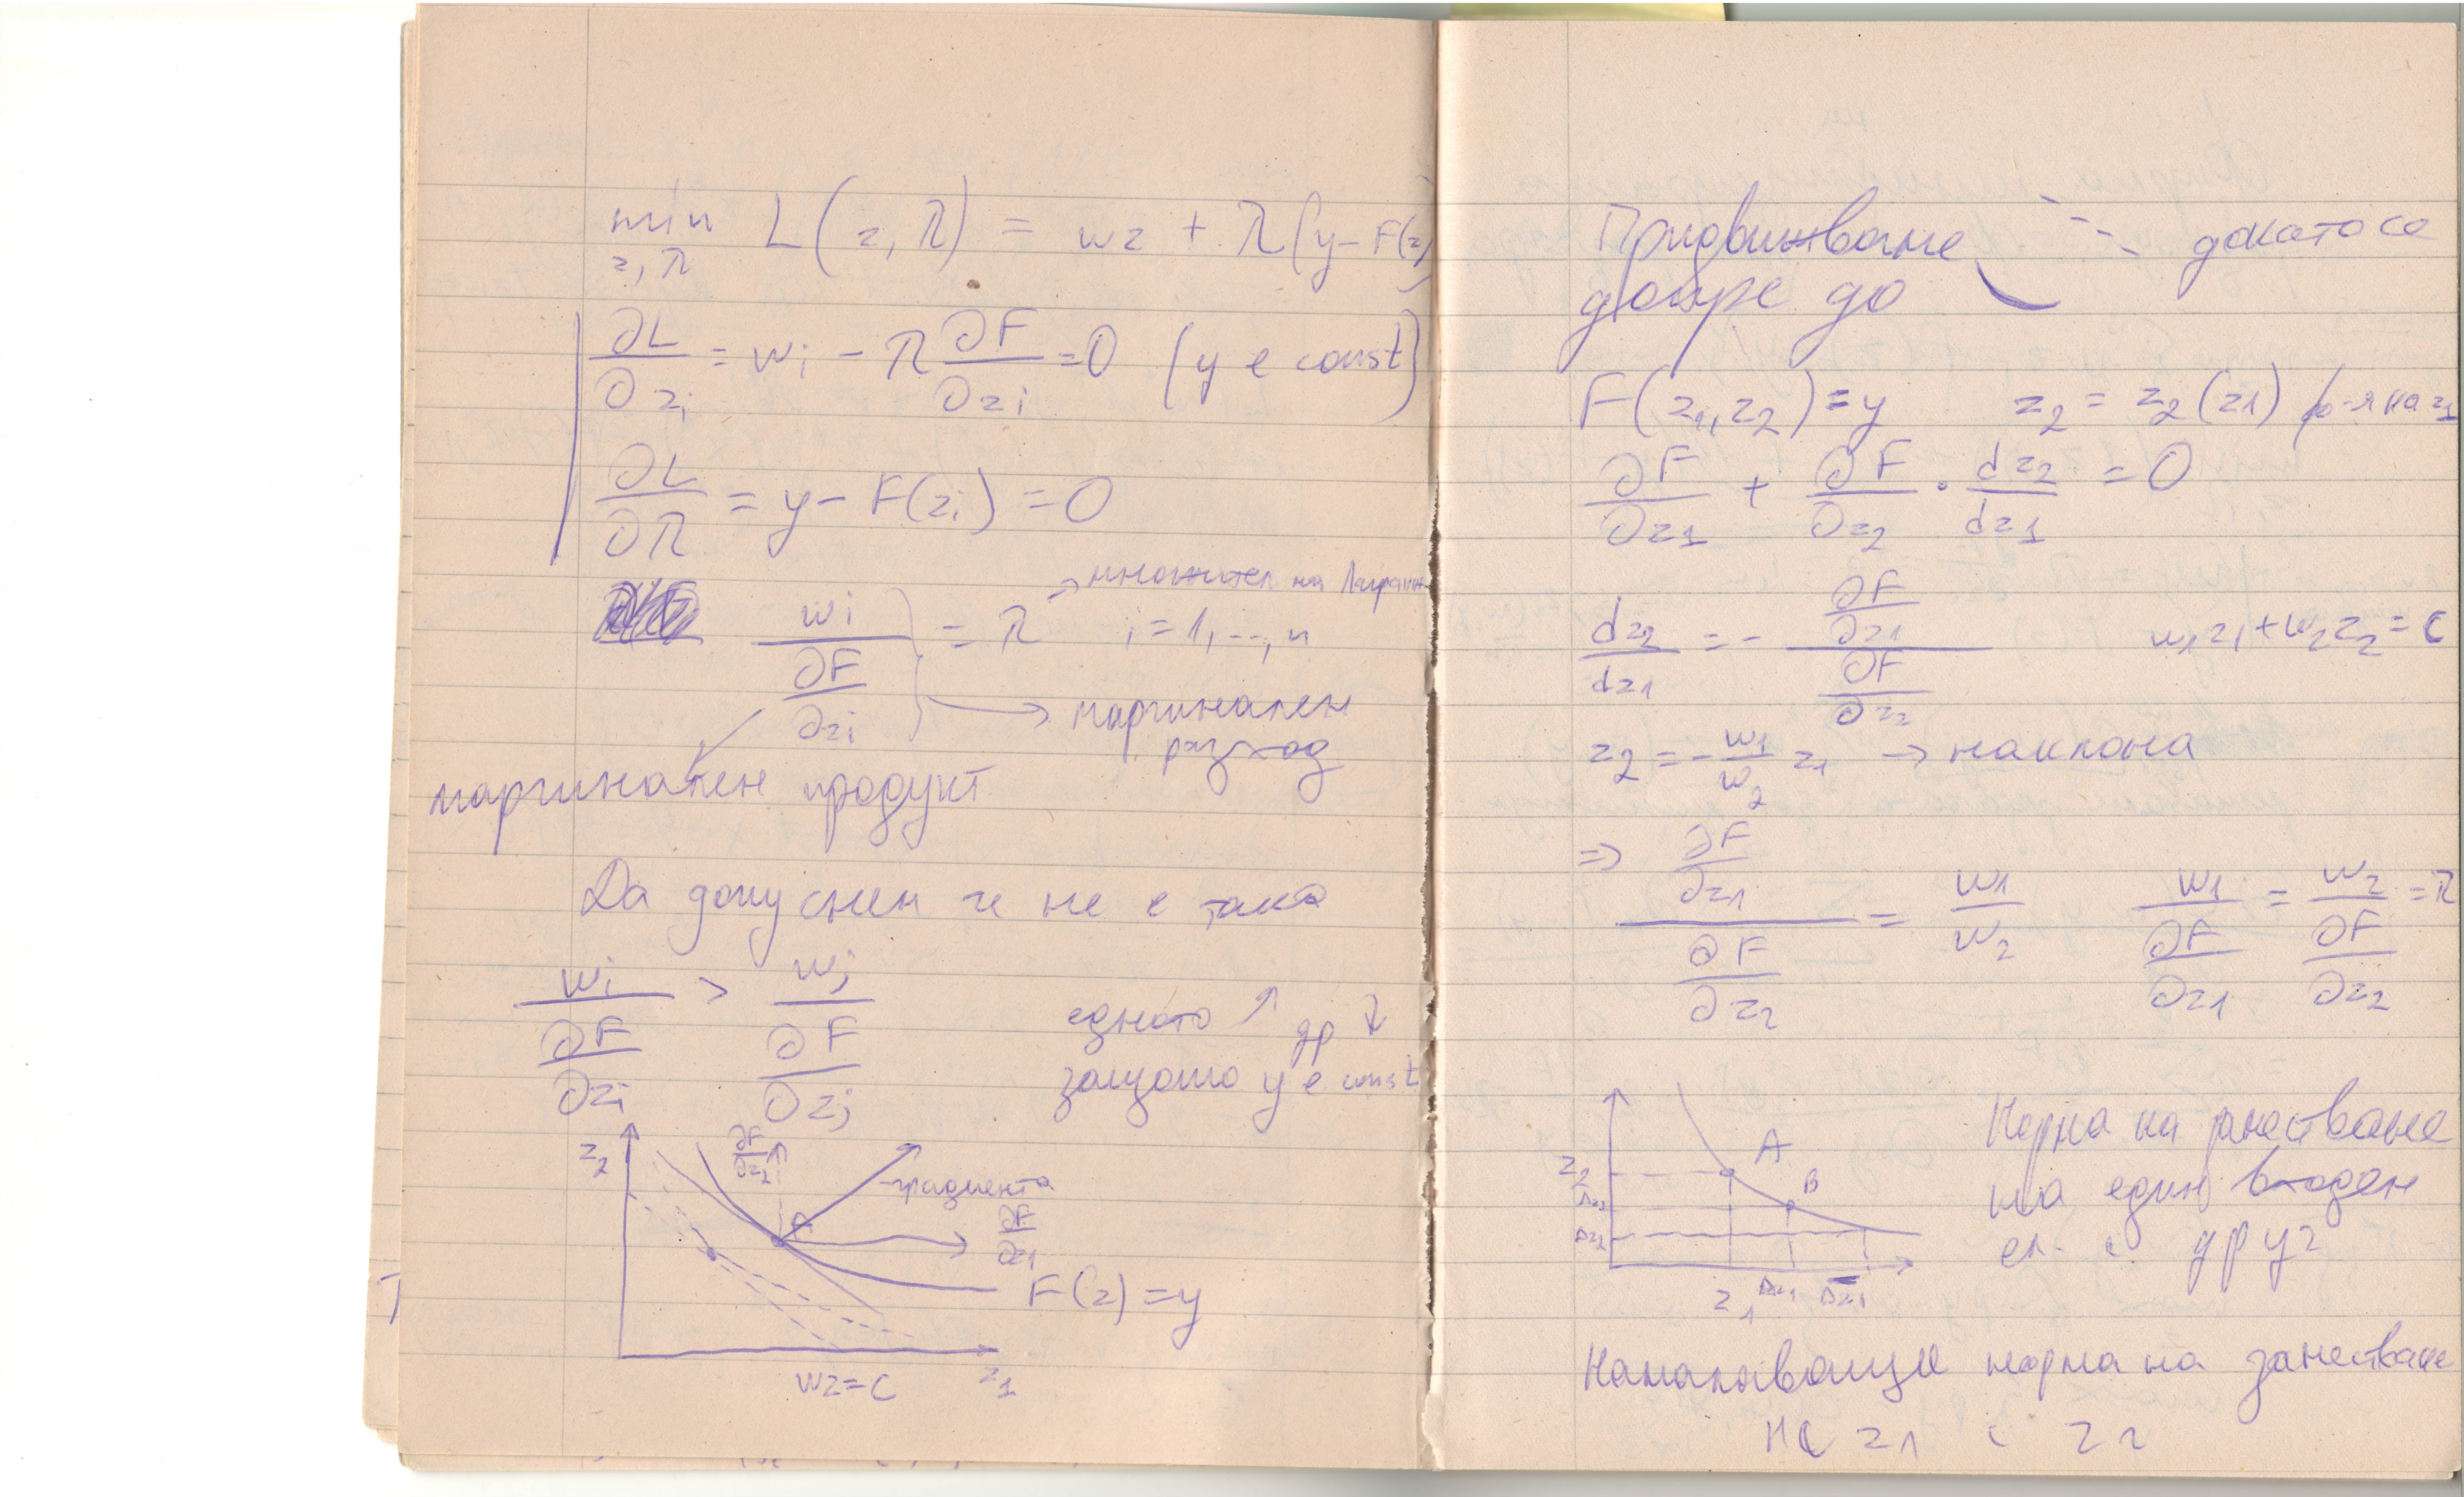 min L(z, λ) = wz + λ(y - F(z))
z, λ
∂L/∂zi = wi - λ ∂F/∂zi = 0 (y е const)
∂L/∂λ = y - F(zi) = 0
wi / ∂F/∂zi = λ i = 1, ..., n
→ множител на Лагранж
→ маргинален
разход
маргинален продукт
Да допуснем че не е така
wi / ∂F/∂zi > wj / ∂F/∂zj
едното ↑ др ↓
защото y е const
z2
∂F/∂z2
A
градиента
∂F/∂z1
F(z) = y
wz = c
z1
Придвижване докато се
допре до
F(z1, z2) = y z2 = z2(z1) ф-я на z1
∂F/∂z1 + ∂F/∂z2 · dz2/dz1 = 0
dz2/dz1 = - ∂F/∂z1 / ∂F/∂z2 w1z1 + w2z2 = c
z2 = - w1/w2 z1 → наклона
=> ∂F/∂z1 / ∂F/∂z2 = w1/w2 w1 / ∂F/∂z1 = w2 / ∂F/∂z2 = λ
A
B
z2
Δz2
Δz2
z1 Δz1 Δz1
Норма на заместване
на един входен
ел. с друг
Намаляваща норма на заместване
на z1 с z2